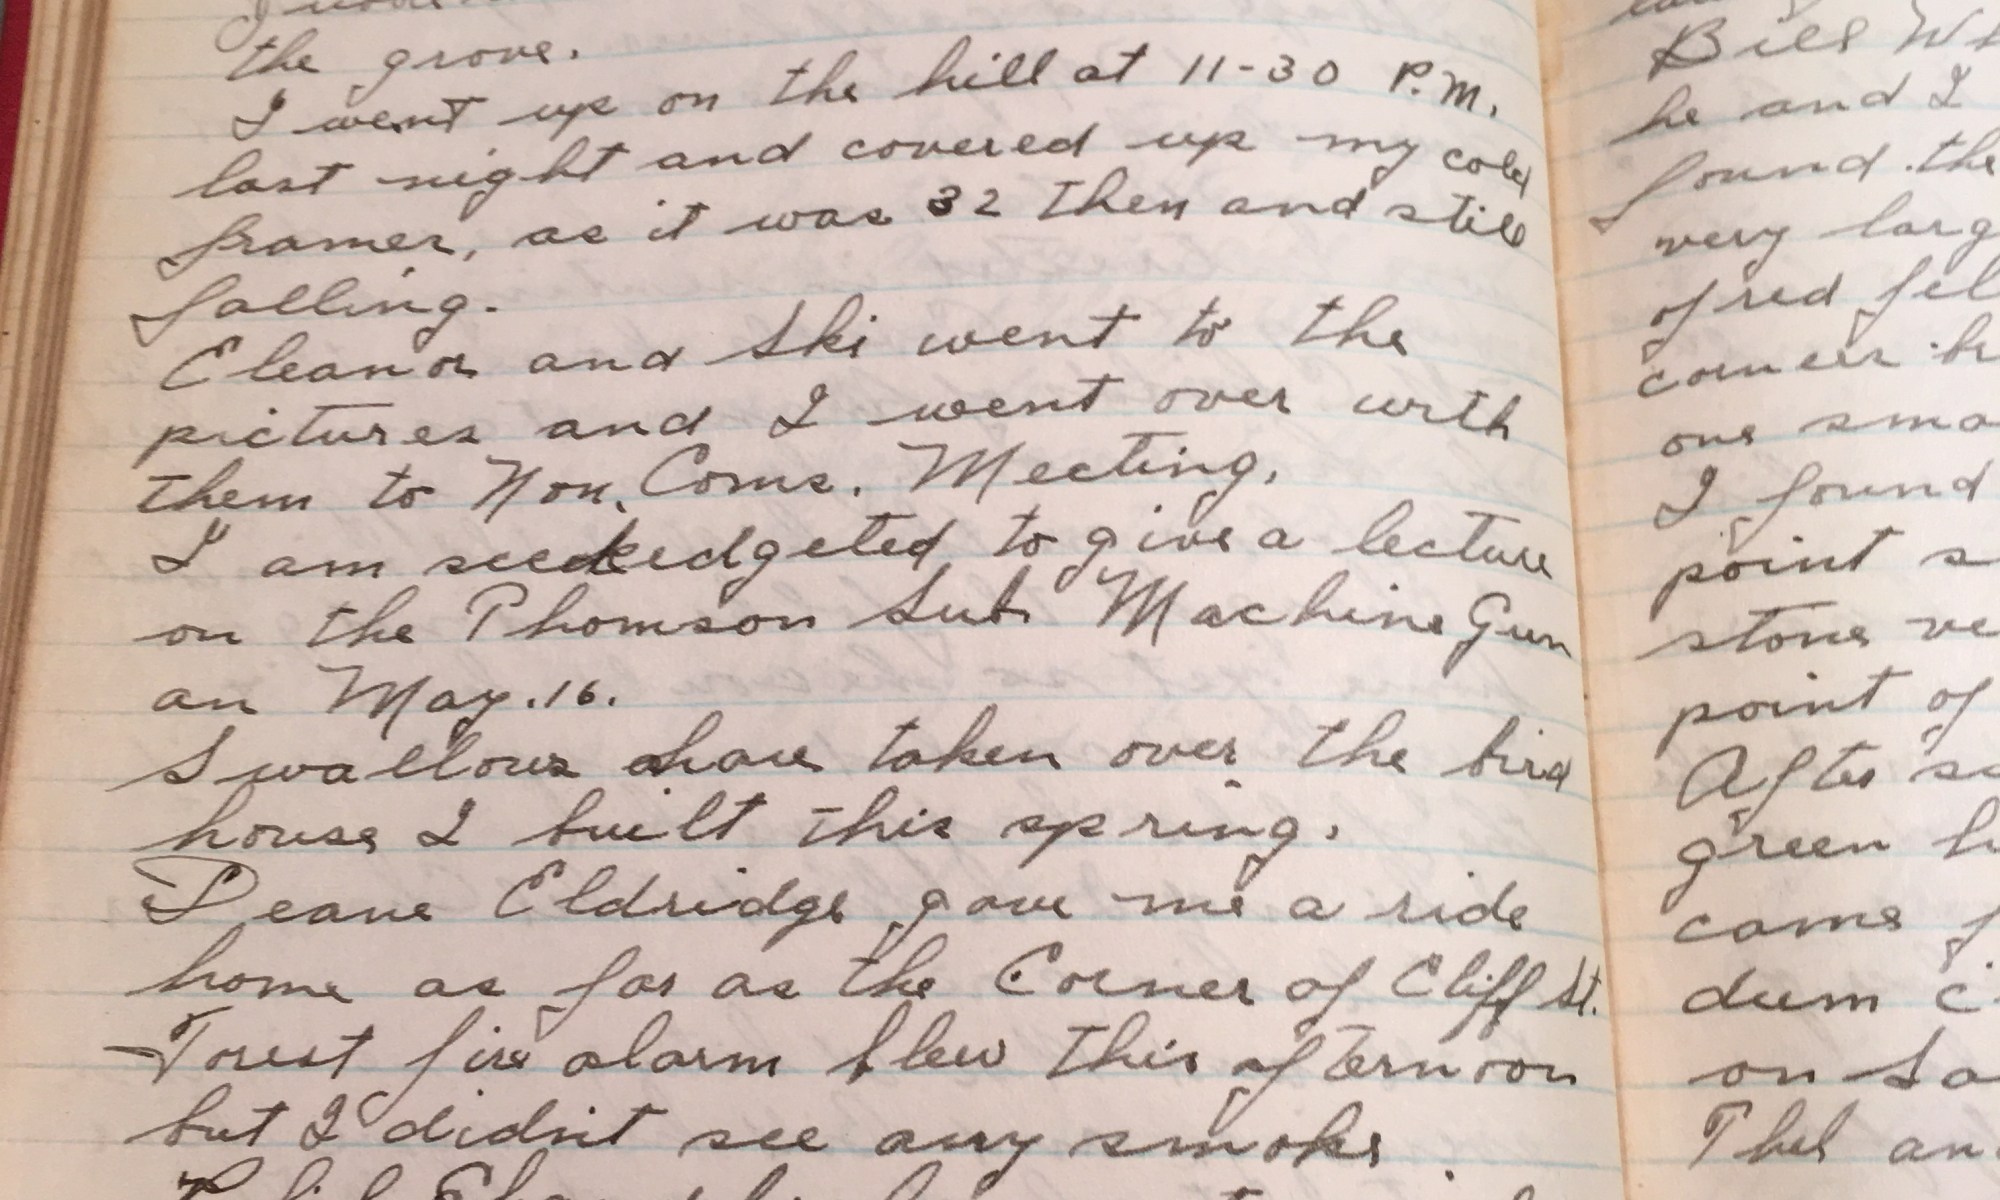 the grove.
I went up on the hill at 11-30 P.M.
last night and covered up my cold
frames, as it was 32 then and still
falling.
Eleanor and Ski went to the
pictures and I went over with
them to Non. Coms. Meeting.
I am to give a lecture
on the Thomson Sub Machine Gun
on May. 16.
Swallows have taken over the bird
house I built this spring.
Deane Eldridge gave me a ride
home as far as the Corner of Cliff St.
Forest fire alarm blew this afternoon
but I didn't see any smoke.
Bill
he and I
found the
very larg
of red
corner
one sma
I found
point s
stone ve
point of
After
green
came f
dum
on Sa